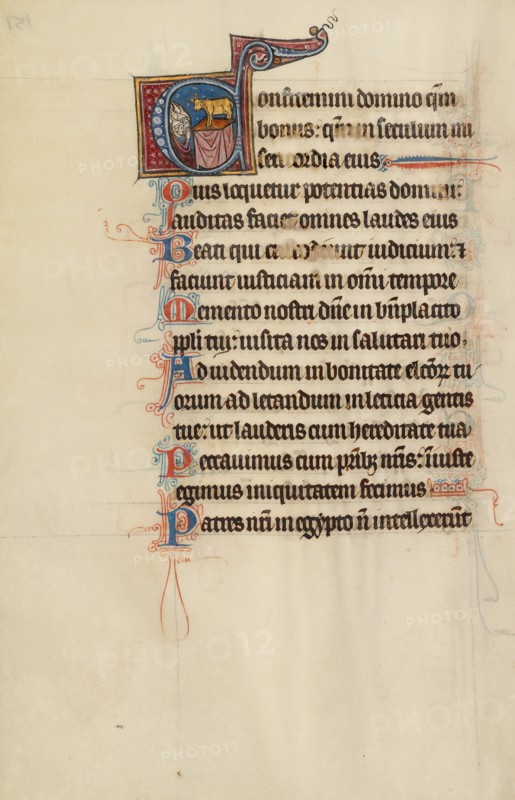 Confitemini domino qm̄
bonus: qm̄ in seculum mi
sericordia eius
Quis loquetur potentias domini:
auditas faciet omnes laudes eius
Beati qui custodiunt iudicium: ⁊
faciunt iusticiam in om̄i tempore
Memento nostri dn̄e in bn̄placito
ppl̄i tui: uisita nos in salutari tuo,
Ad uidendum in bonitate elc̄oꝝ tu
orum ad letandum in leticia gentis
tue: ut lauderis cum hereditate tua
Peccauimus cum pr̄ibꝫ nr̄is: īiuste
egimus iniquitatem fecimus
Patres nr̄i in egypto n̄ intellexerūt
PHOTO12